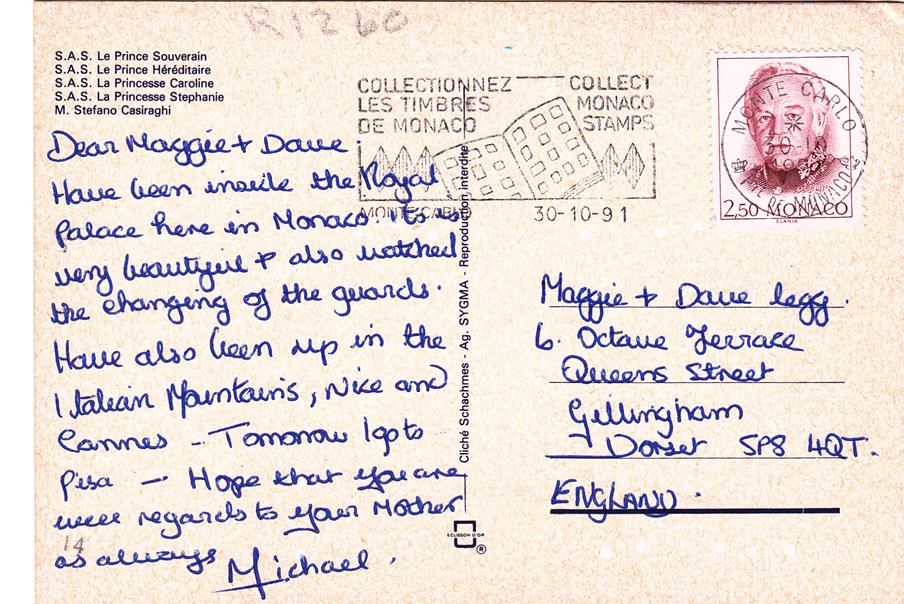 R1260
S.A.S. Le Prince Souverain
S.A.S. Le Prince Héréditaire
S.A.S. La Princesse Caroline
S.A.S. La Princesse Stephanie
M. Stefano Casiraghi
Dear Maggie + Dave
Have been inside the Royal
Palace here in Monaco. its is
very beautiful + also watched
the changing of the guards.
Have also been up in the
Italian Mountains, Nice and
Cannes - Tomorrow I go to
Pisa - Hope that you are
well regards to your Mother
as always
Michael.
14
COLLECTIONNEZ
LES TIMBRES
DE MONACO
COLLECT
MONACO
STAMPS
MONTE-CARLO
30-10-91
Cliché Schachmes - Ag. SYGMA - Reproduction interdite
ECUSSON D'OR
®
MONTE CARLO
2,50 MONACO
SLANIA
Maggie + Dave Legg.
6. Octave Terrace
Queens Street
Gillingham
Dorset SP8 4QT.
ENGLAND.